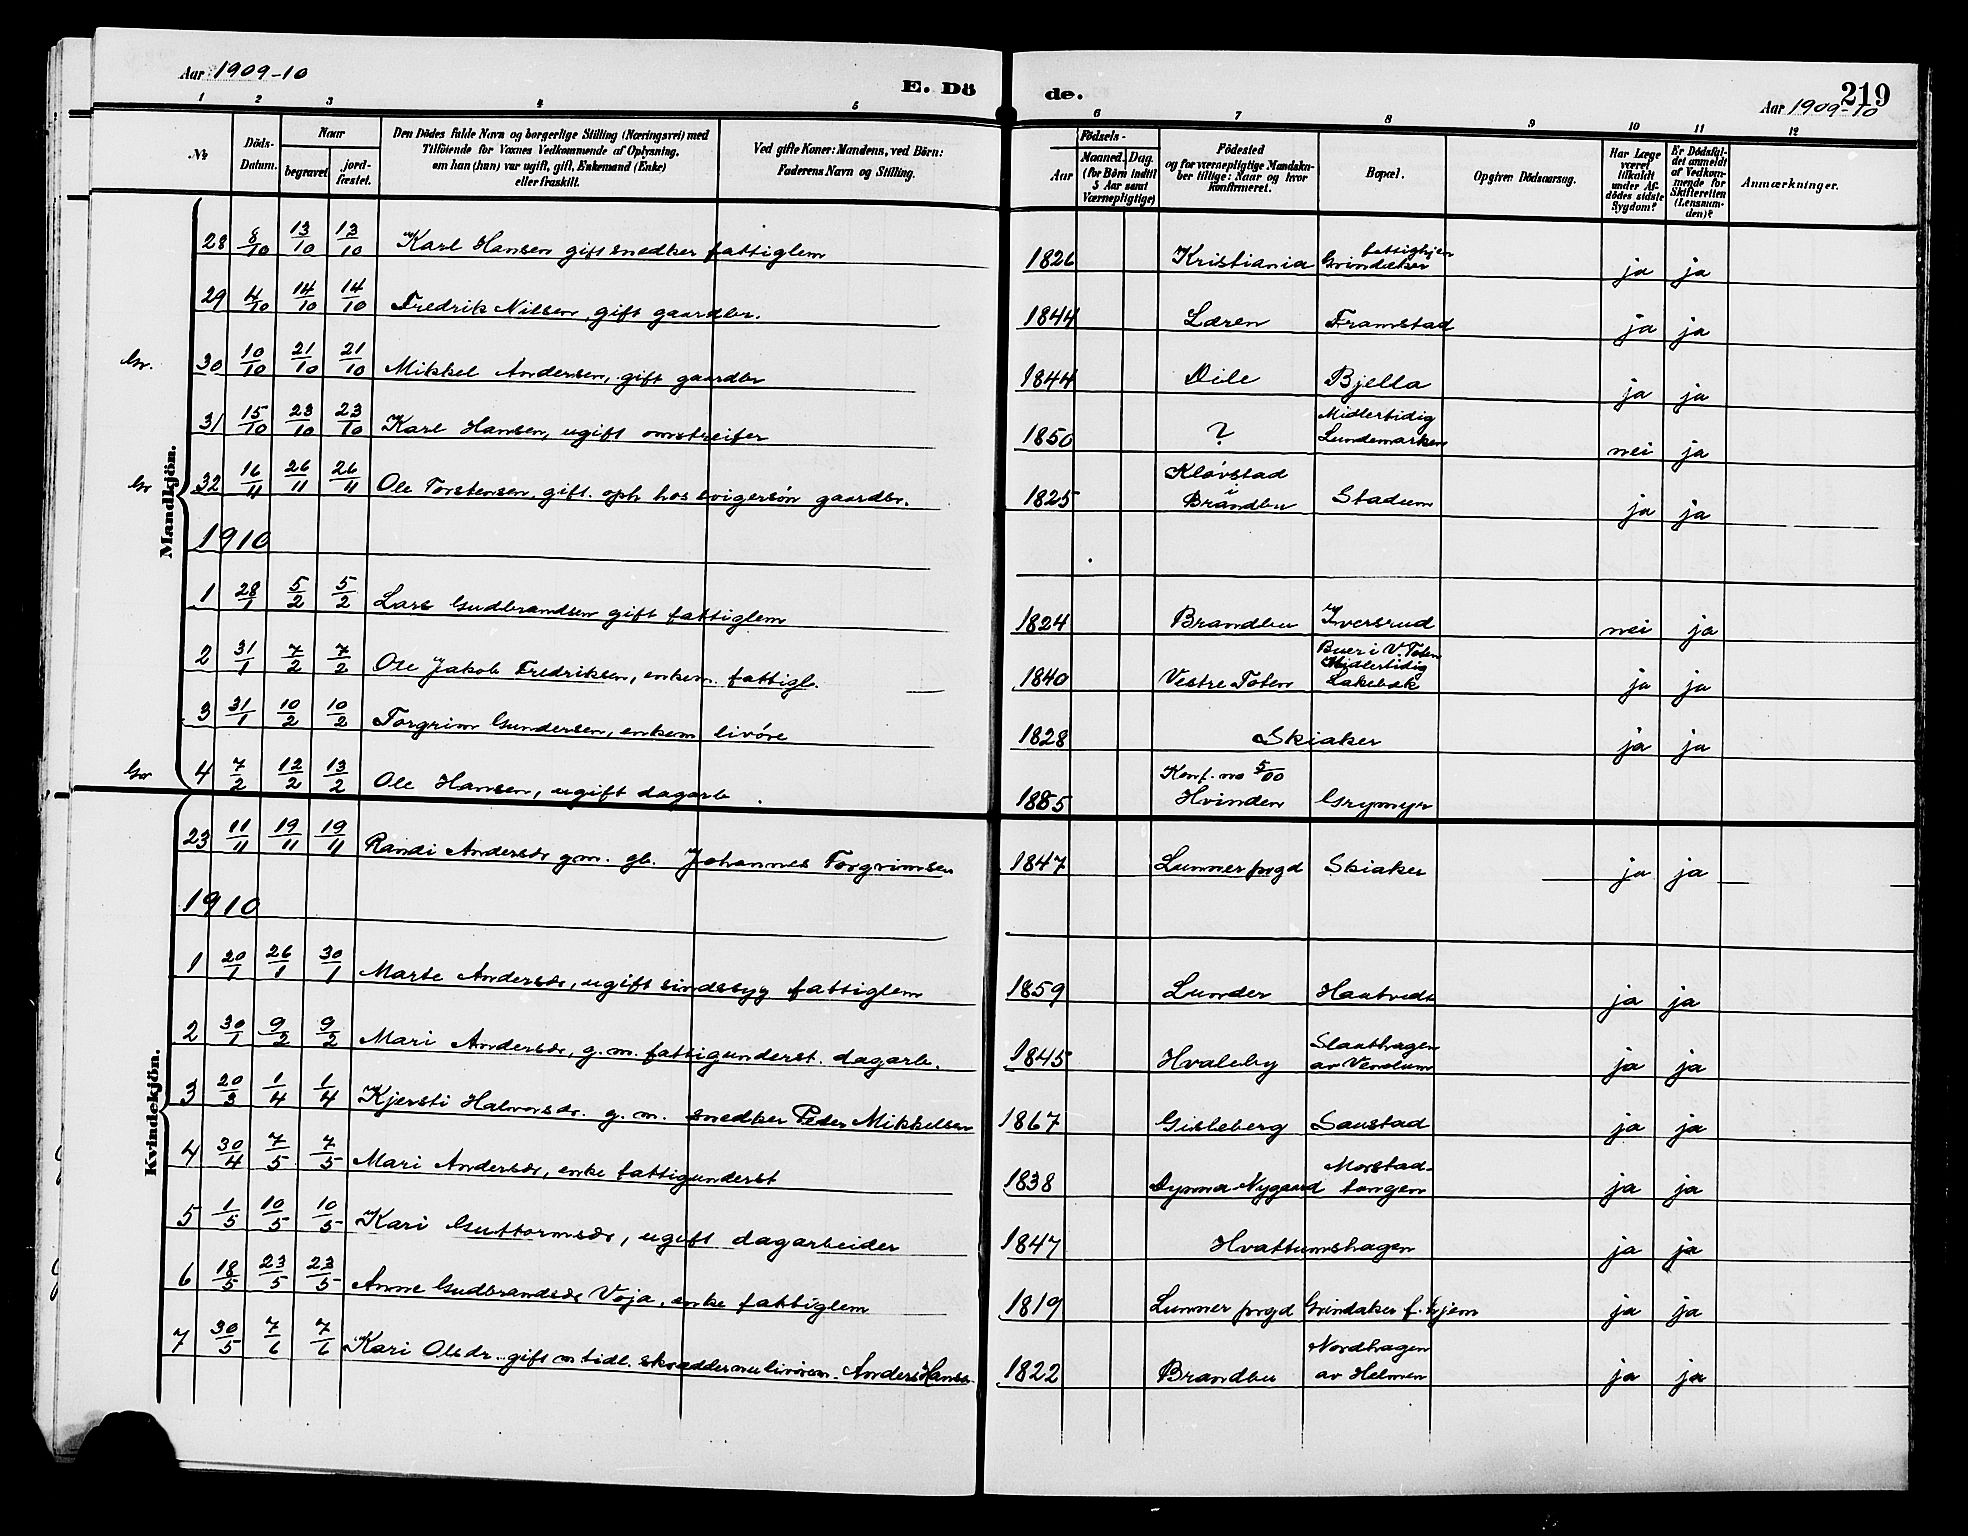 Aar 1909-10
E. Dö
de.
219
Aar 1909-10
1 2 3 4 5 6 7 8 9 10 11 12
№
Döds-Datum.
Naar
begravet
jord-fæstet.
Den Dödes fulde Navn og borgerlige Stilling (Næringsvei) med
Tilföiende for Voxnes Vedkommende af Oplysning,
om han (hun) var ugift, gift, Enkemand (Enke)
eller fraskilt.
Ved gifte Koner: Mandens, ved Börn:
Faderens Navn og Stilling.
Födsels-
Aar
Maaned. Dag.
(for Börn indtil
5 Aar samt
Værnepligtige)
Födested
og for værnepligtige Mandska-
ber tillige: Naar og hvor
Konfirmeret.
Bopæl.
Opgiven Dödsaarsag.
Har Læge
været
tilkaldt
under Af-
dödes sidste
Sygdom?
Er Dödsfal-
det anmeldt
af Vedkom-
mende for
Skifteretten
(Lensman-
den)?
Anmærkninger.
Mandkjön.
28 8/10 13/10 13/10 Karl Hansen gift snedker fattiglem 1826 Kristiania Grindaker fattighjem ja ja
29 14/10 14/10 Fredrik Nilsen, gift gaardbr. 1844 Læren Framstad ja ja
Gr. 30 10/10 21/10 21/10 Mikkel Andersen, gift gaardbr 1844 Dile Bjella ja ja
31 15/10 23/10 23/10 Karl Hansen, ugift omstreifer 1850 ? Midlertidig Lundemarken nei ja
Gr 32 16/11 26/11 26/11 Ole Torstensen, gift. oph hos svigersøn gaardbr. 1825 Kløvstad i Brandbu Stadum ja ja
1910
1 28/1 5/2 5/2 Lars Gudbrandsen gift fattiglem 1824 Brandbu Iversrud nei ja
2 31/1 7/2 7/2 Ole Jakob Fredriksen, enkem. fattigl. 1840 Vestre Toten Buer i V. Toten Midlertidig Lakebæk ja ja
3 31/1 10/2 10/2 Torgrim Gundersen, enkem livøre 1828 Skiaker ja ja
Gr 4 7/2 12/2 13/2 Ole Hansen, ugift dagarb. 1885 Konf. no 5/00 Hvinden Grymyr
Kvindekjön.
23 11/11 19/11 19/11 Randi Andersdr gm. gb. Johannes Torgrimsen 1847 Lunner prgd Skiaker ja ja
1910
1 20/1 26/1 30/1 Marte Andersdr, ugift sindssyg fattiglem 1859 Lunder Haatvedt ja ja
2 30/1 9/2 9/2 Mari Andersdr, g. m. fattigunderst. dagarb. 1845 Hvaleby Slaathagen av Vendum ja ja
3 20/3 1/4 1/4 Kjersti Halvorsdr. g. m. snedker Peder Mikkelsen 1867 Gisleberg Saustad ja ja
4 30/4 7/5 7/5 Mari Andersdr, enke fattigunderst 1838 Dynna Nygaard Morstad-tangen ja ja
5 1/5 10/5 10/5 Kari Guttormsdr, ugift dagarbeider 1847 Hvattumshagen ja ja
6 18/5 23/5 23/5 Anne Gudbrandsdr Voja, enke fattiglem 1819 Lunner prgd Grindaker f. hjem ja ja
7 30/5 7/6 7/6 Kari Olsdr. gift m tidl. skrædder nu livørem. Anders Hanss. 1822 Brandbu Nordhagen av Helmen ja ja